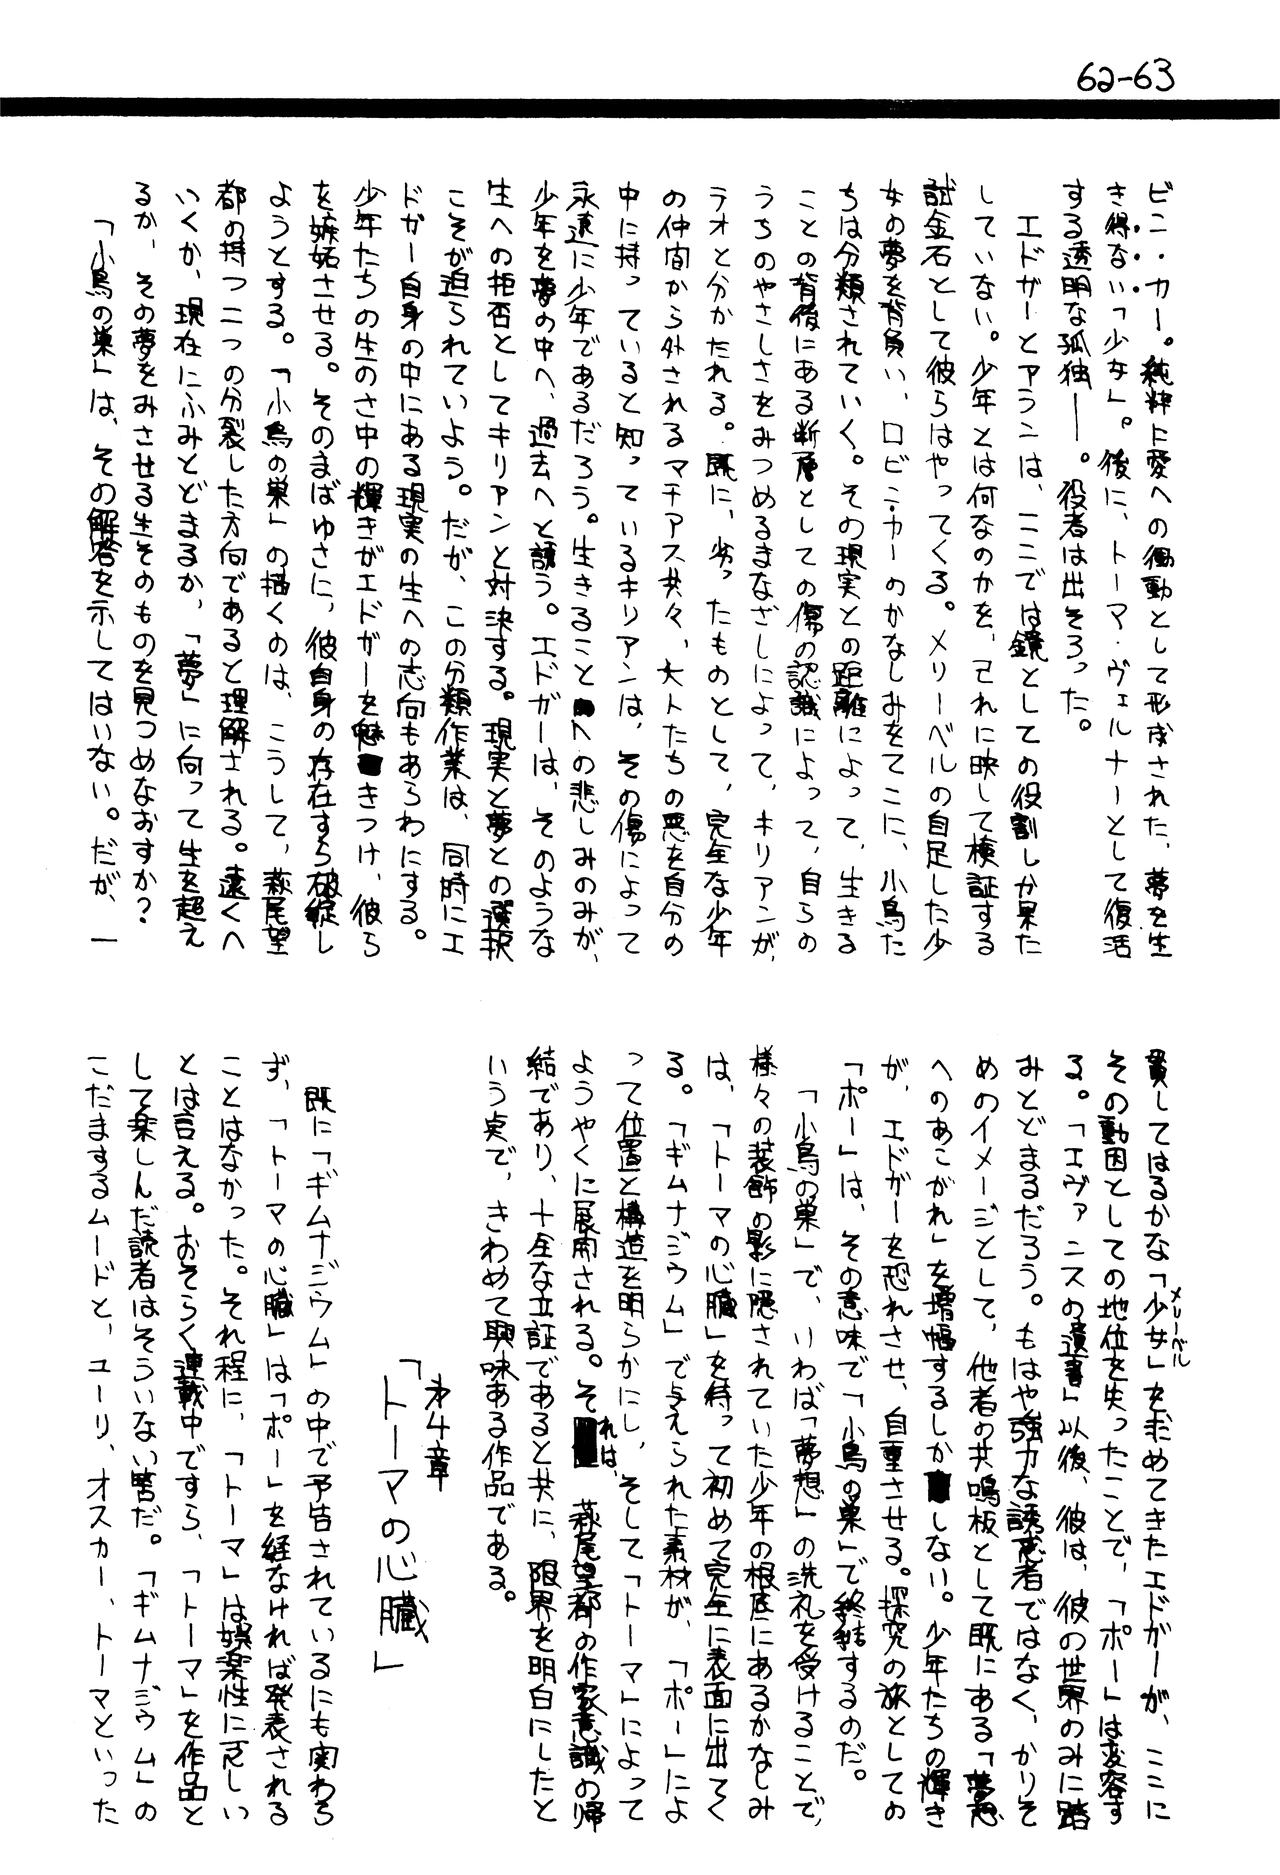 62-63
ビン・カー。純粋に愛への衝動として形成された、夢を生
き得ない「少女」。後に、トーマ・ヴェルナーとして復活
する透明な孤独——。役者は出そろった。
エドガーとアランは、ここでは鏡としての役割しか果た
していない。少年とは何なのかを、己れに映して検証する
試金石として彼らはやってくる。メリーベルの自足した少
女の夢を背負い、ロビン・カーのかなしみをてこに、小鳥た
ちは分類されていく。その現実との距離によって、生きる
ことの背後にある断層としての傷の認識によって、自らの
うちのやさしさをみつめるまなざしによって、キリアンが、
テオと分かたれる。既に、劣ったものとして、完全な少年
の仲間から外されるマチアス共々、大人たちの悪を自分の
中に持っていると知っているキリアンは、その傷によって
永遠に少年であるだろう。生きることへの悲しみのみが、
少年を夢の中へ、過去へと誘う。エドガーは、そのような
生への拒否としてキリアンと対決する。現実と夢との選択
こそが迫られていよう。だが、この分類作業は、同時にエ
ドガー自身の中にある現実の生への志向もあらわにする。
少年たちの生のさ中の輝きがエドガーを魅きつけ、彼ら
を嫉妬させる。そのまばゆさに、彼自身の存在すら破綻し
ようとする。「小鳥の巣」の描くのは、こうして、萩尾望
都の持つ二つの分裂した方向であると理解される。遠くへ
いくか、現在にふみとどまるか、「夢」に向って生を超え
るか、その夢をみさせる生そのものを見つめなおすか？
「小鳥の巣」は、その解答を示してはいない。だが、一
貫してはるかな「少女」を求めてきたエドガーが、ここに
メリーベル
その動因としての地位を失ったことで、「ポー」は変容す
る。「エヴァンスの遺書」以後、彼は、彼の世界のみに踏
みとどまるだろう。もはや強力な誘惑者ではなく、かりそ
めのイメージとして、他者の共鳴板として既にある「夢想
へのあこがれ」を増幅するしかしない。少年たちの輝き
が、エドガーを恐れさせ、自重させる。探究の旅としての
「ポー」は、その意味で「小鳥の巣」で終結するのだ。
「小鳥の巣」で、いわば「夢想」の洗礼を受けることで、
様々の装飾の影に隠されていた少年の根底にあるかなしみ
は、「トーマの心臓」を待って初めて完全に表面に出てく
る。「ギムナジウム」で与えられた素材が、「ポー」によ
って位置と構造を明らかにし、そして「トーマ」によって
ようやくに展開される。それは、萩尾望都の作家意識の帰
結であり、十全な立証であると共に、限界を明白にしたと
いう点で、きわめて興味ある作品である。
第4章
「トーマの心臓」
既に「ギムナジウム」の中で予告されているにも変わら
ず、「トーマの心臓」は「ポー」を経なければ発表される
ことはなかった。それ程に、「トーマ」は娯楽性に乏しい
とは言える。おそらく連載中ですら、「トーマ」を作品と
して楽しんだ読者はそういない筈だ。「ギムナジウム」の
こだまするムードと、ユーリ、オスカー、トーマといった